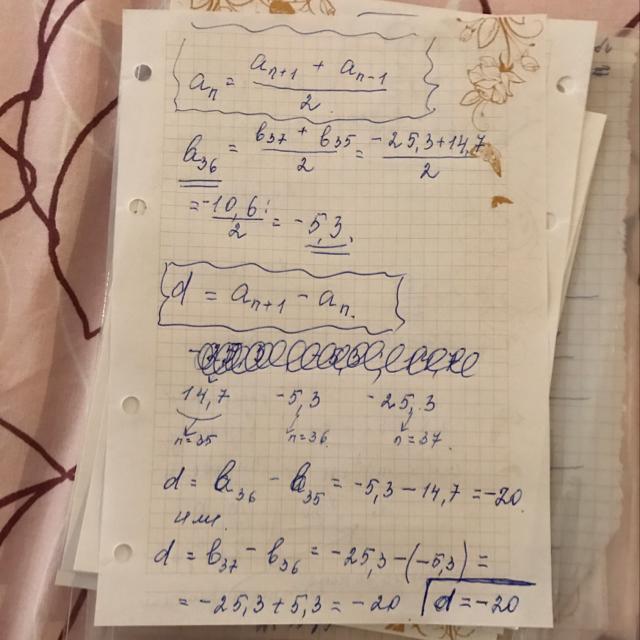 aₙ = (aₙ₊₁ + aₙ₋₁) / 2
b₃₆ = (b₃₇ + b₃₅) / 2 = (-25,3+14,7) / 2
= -10,6 / 2 = -5,3.
d = aₙ₊₁ - aₙ.
14,7 -5,3 -25,3
n=35 n=36. n=37.
d = b₃₆ - b₃₅ = -5,3 - 14,7 = -20.
или.
d = b₃₇ - b₃₆ = -25,3 - (-5,3) =
= -25,3 + 5,3 = -20 d = -20